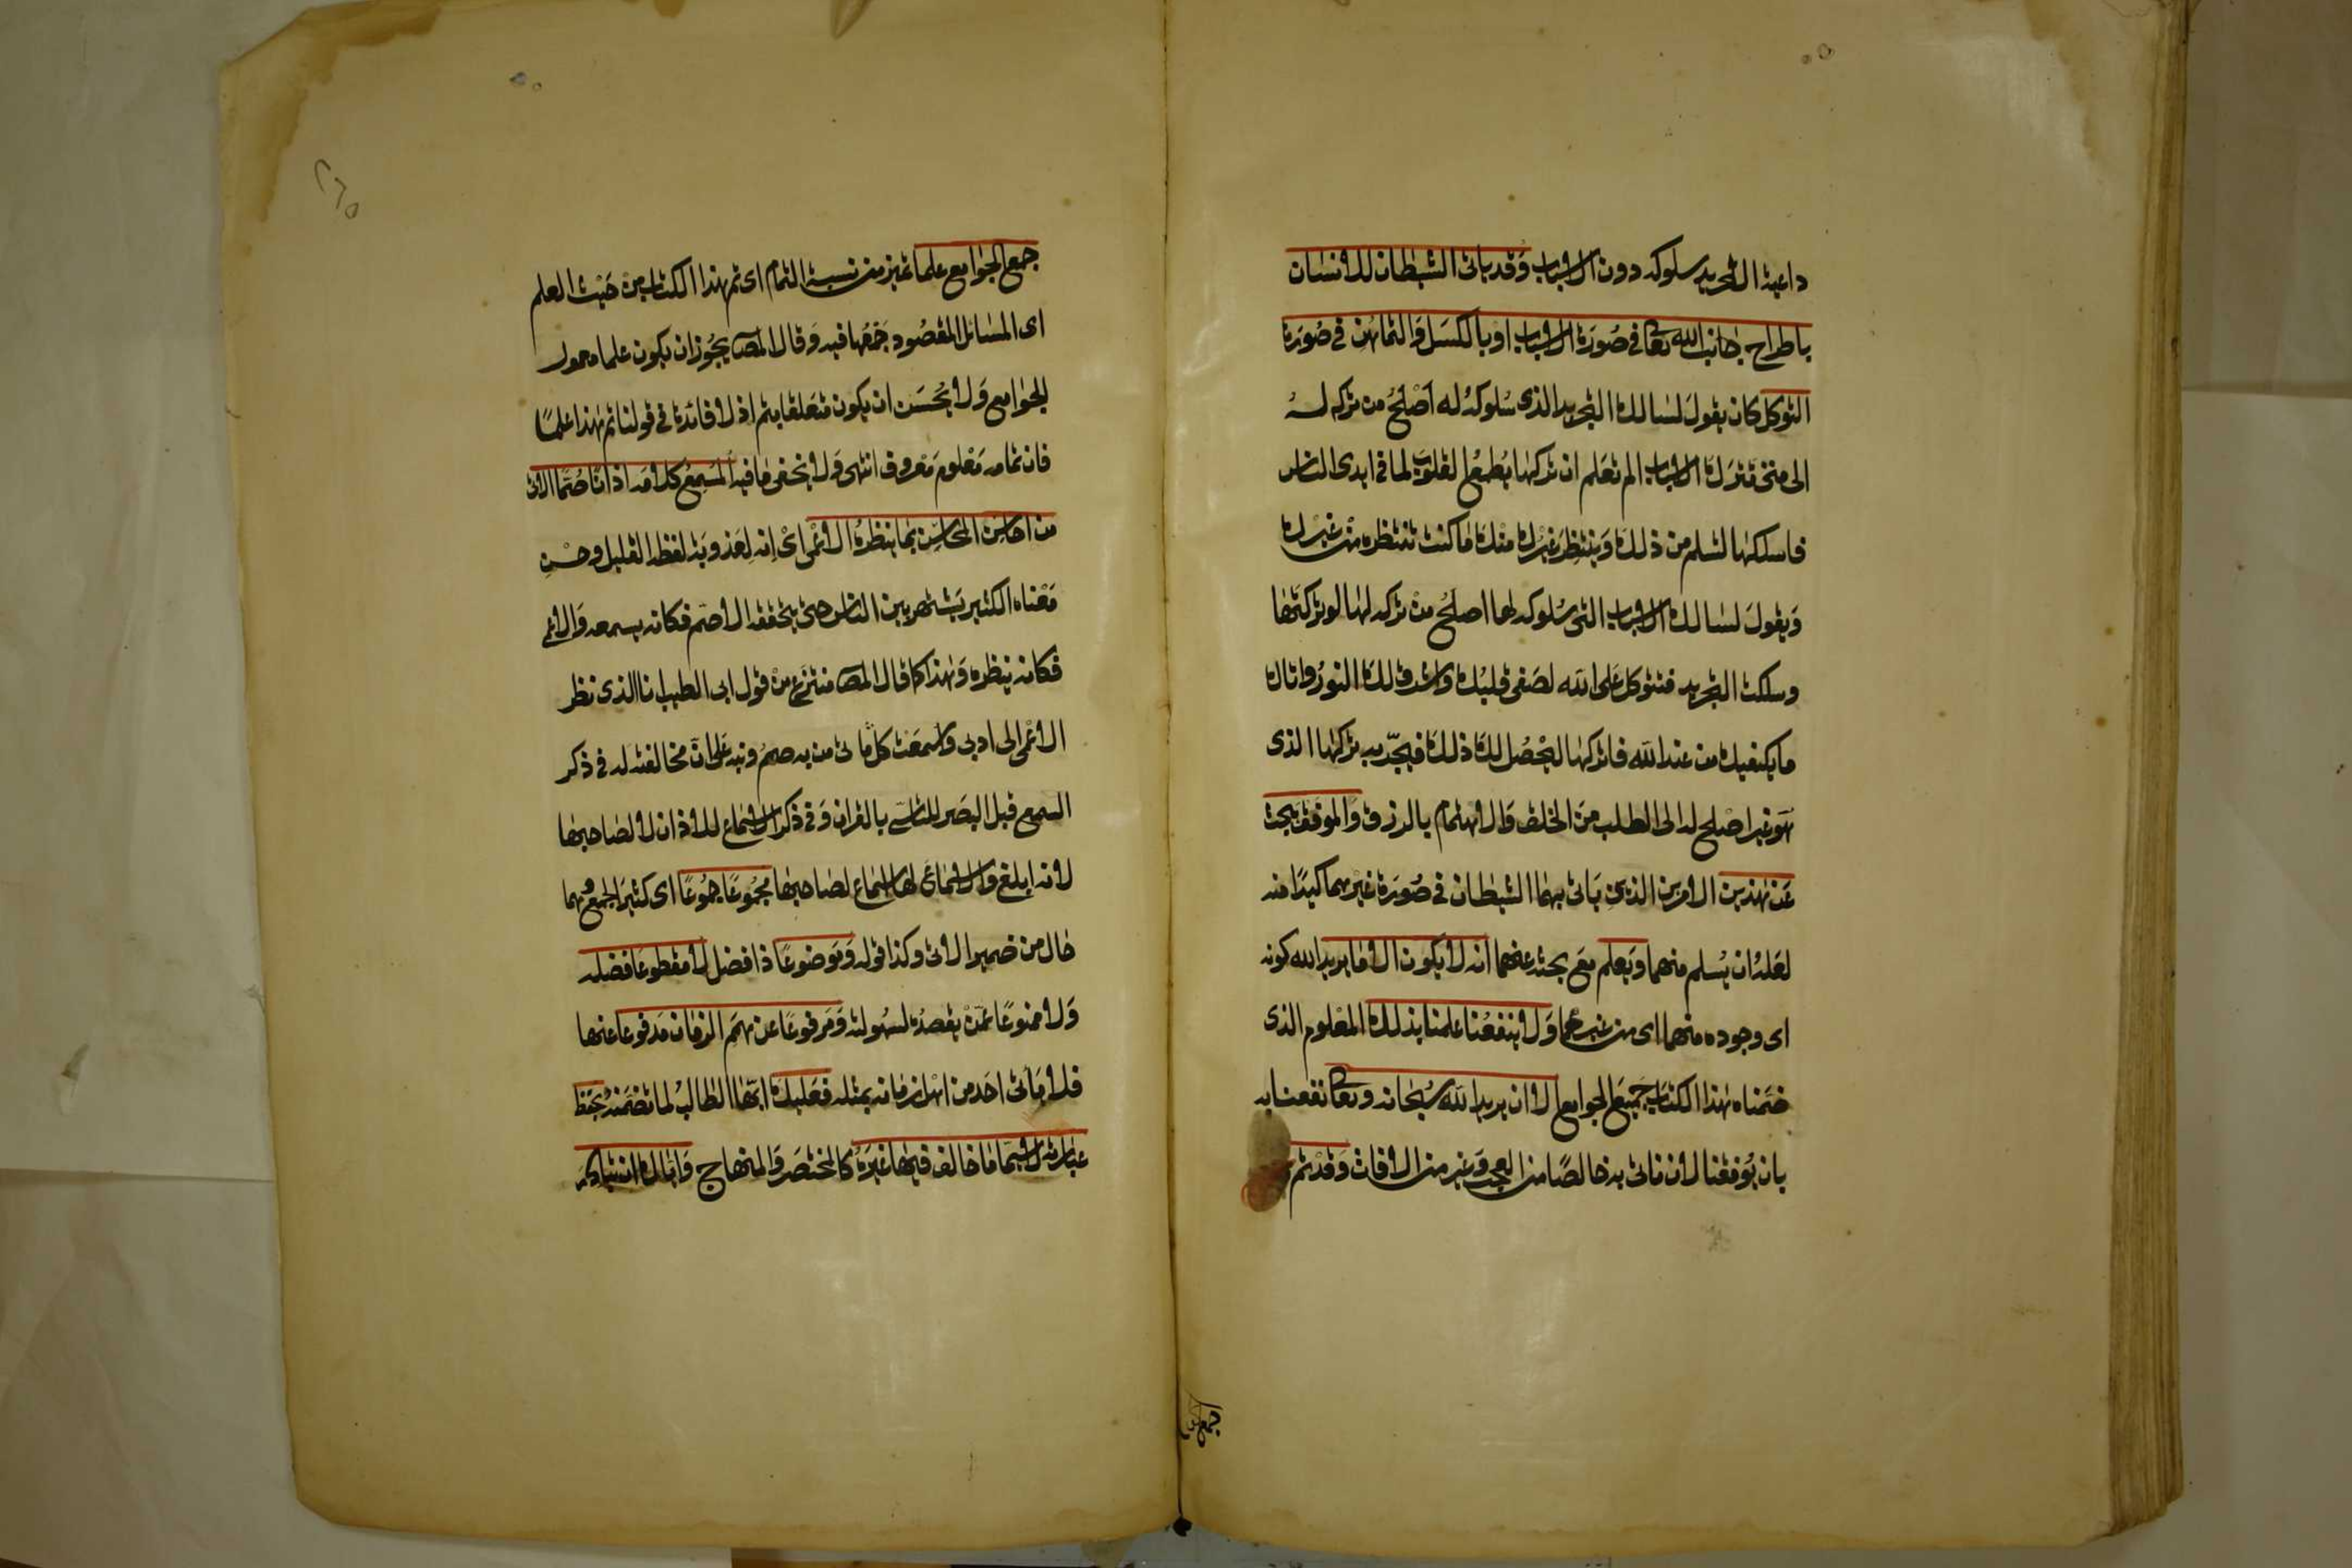 داعية الى التجريد سلوكه دون الاسباب وقد ياتى الشيطان للانسان
باطراح جانب الله تعا فى صورة الاسباب او بالكسل والتماهن فى صورة
التوكل كان يقول لسالك التجريد الذى سلوكه له اصلح من تركه له
الى متى تترك الاسباب الم تعلم ان تركها يطمع القلوب لما فى ايدى الناس
فاسلكها لتسلم من ذلك وينتظر غيرك منك ما كنت تنتظره من غيرك
ويقول لسالك الاسباب التى سلوكه لها اصلح من تركه لها لو تركتها
وسلكت التجريد فتتوكل على الله لصفى قلبك واشرق لك النور واتاك
ما يكفيك من عند الله فاتركها ليحصل لك ذلك فيجر به تركها الذى
هو غير اصلح له الى الطلب من الخلق والاهتمام بالرزق والموفق يبحث
عن هذين الامرين الذين ياتى بهما الشيطان فى صورة غيرهما كيدا منه
لعله ان يسلم منهما ويعلم مع بحثه عنهما انه لا يكون الا ما يريد الله كونه
اى وجوده منهما اى من غيرهما ولا ينفعنا علمنا بذلك المعلوم الذى
ضمناه هذا الكتاب جميع الجوامع الا ان يريد الله سبحانه وتعا نفعنا به
بان يوفقنا لان ناتى به خالصا من العجب وغيره من الافات وقد تم
جمع
جمع الجوامع علما تميز من نسبة التمام اى تم هذا الكتاب من حيث العلم
اى المسائل المقصود جمعها فيه وقال المص يجوز ان يكون علما معمول
الجوامع ولا يحسن ان يكون متعلقا بتم اذ لا فائدة فى قولنا تم هذا علما
فان تمامه معلوم معروف انتهى ولا يخفى ما فيه المسمع كلامه اذانا صما الاتى
من احاسن المحاسن بما ينظره الاعمى اى انه لعذوبة لفظه القليل وحسن
معناه الكثير يشتهر بين الناس حتى يتحققه الاصم فكانه يسمعه والاعمى
فكانه ينظره وهذا كما قال المص منتزع من قول ابى الطيب انا الذى نظر
الاعمى الى ادبى واسمعت كلماتى من به صمم ونبه على ان مخالفته له فى ذكر
السمع قبل البصر للتاسى بالقران وفى ذكر الاسماع للاذان لا لصاحبها
لانه ابلغ والاسماع لها اسماع لصاحبها مجموعا جموعا اى كثير الجمع وهما
حال من ضمير الاتى وكذا قوله وموضوعا ذا فضل لا مقطوعا فضله
ولا ممنوعا عمن يقصده لسهولته ومرفوعا عن همم الزمان مدفوعا عنها
فلا ياتى احد من اهل زمانه بمثله فعليك ايها الطالب لما تضمنه بحفظ
عباراته لا سيما ما خالف فيها غيره كالمختصر والمنهاج واياك ان تبادر